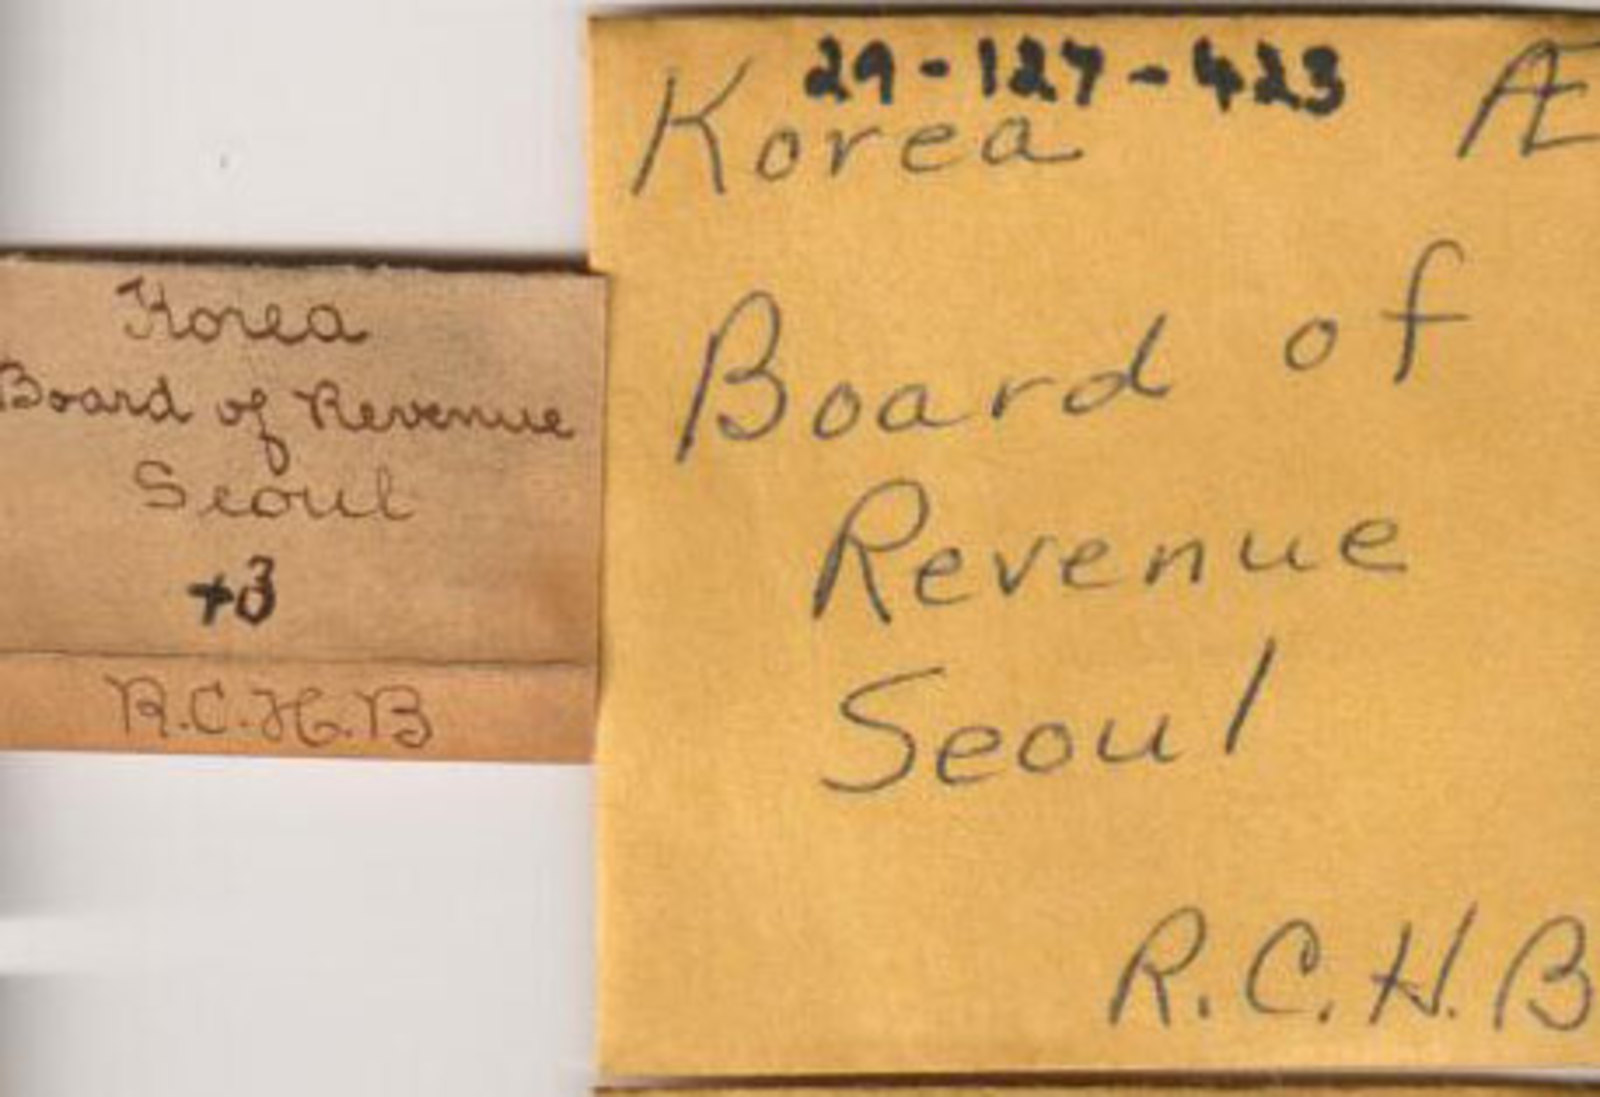 Korea
Board of Revenue
Seoul
R.C.H.B
29-127-423
Korea Æ
Board of
Revenue
Seoul
R.C.H.B